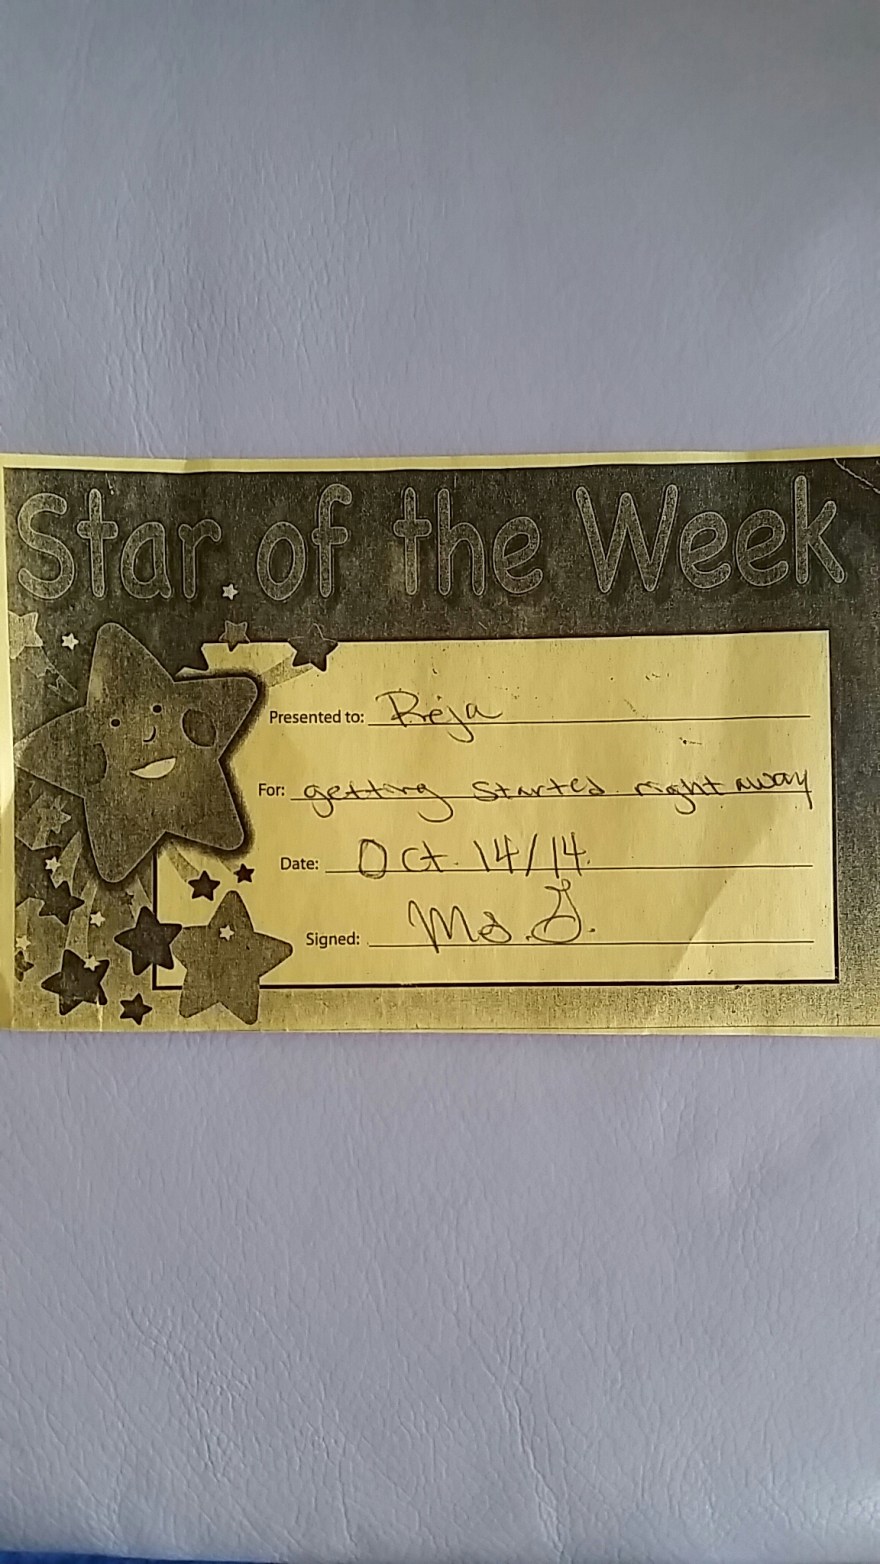 Star of the Week
Presented to: Reja
For: getting started right away
Date: Oct. 14/14.
Signed: Ms. G.